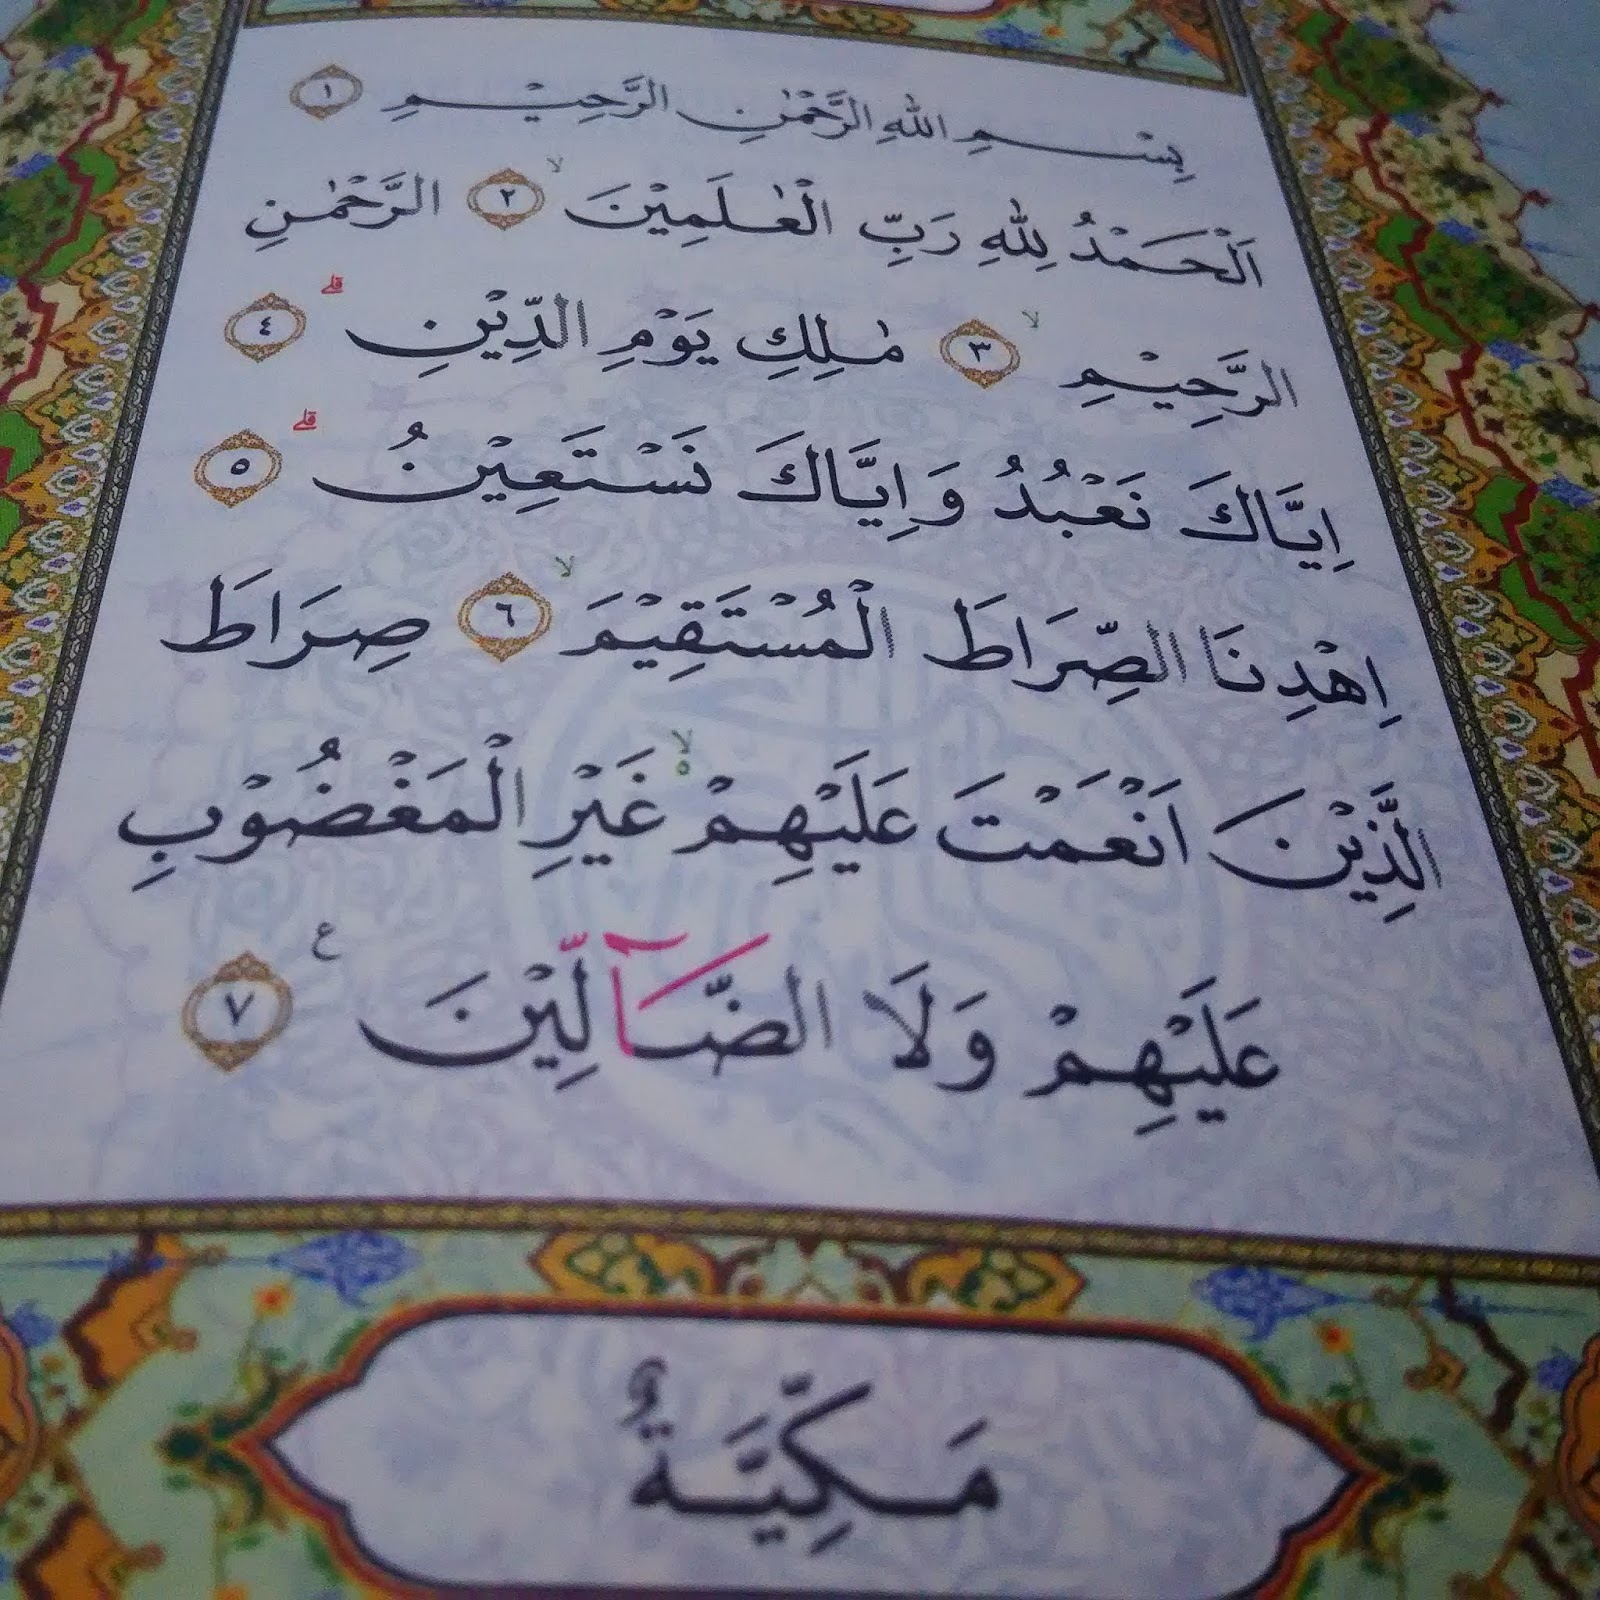 بِسْمِ اللّٰهِ الرَّحْمٰنِ الرَّحِيْمِ ١
اَلْحَمْدُ لِلّٰهِ رَبِّ الْعٰلَمِيْنَ ۙ ٢ الرَّحْمٰنِ
الرَّحِيْمِ ۙ ٣ مٰلِكِ يَوْمِ الدِّيْنِ ۗ ٤
اِيَّاكَ نَعْبُدُ وَاِيَّاكَ نَسْتَعِيْنُ ۗ ٥
اِهْدِنَا الصِّرَاطَ الْمُسْتَقِيْمَ ۙ ٦ صِرَاطَ
الَّذِيْنَ اَنْعَمْتَ عَلَيْهِمْ ەۙ غَيْرِ الْمَغْضُوْبِ
عَلَيْهِمْ وَلَا الضَّاۤلِّيْنَ ع ٧
مَكِّيَّةٌ